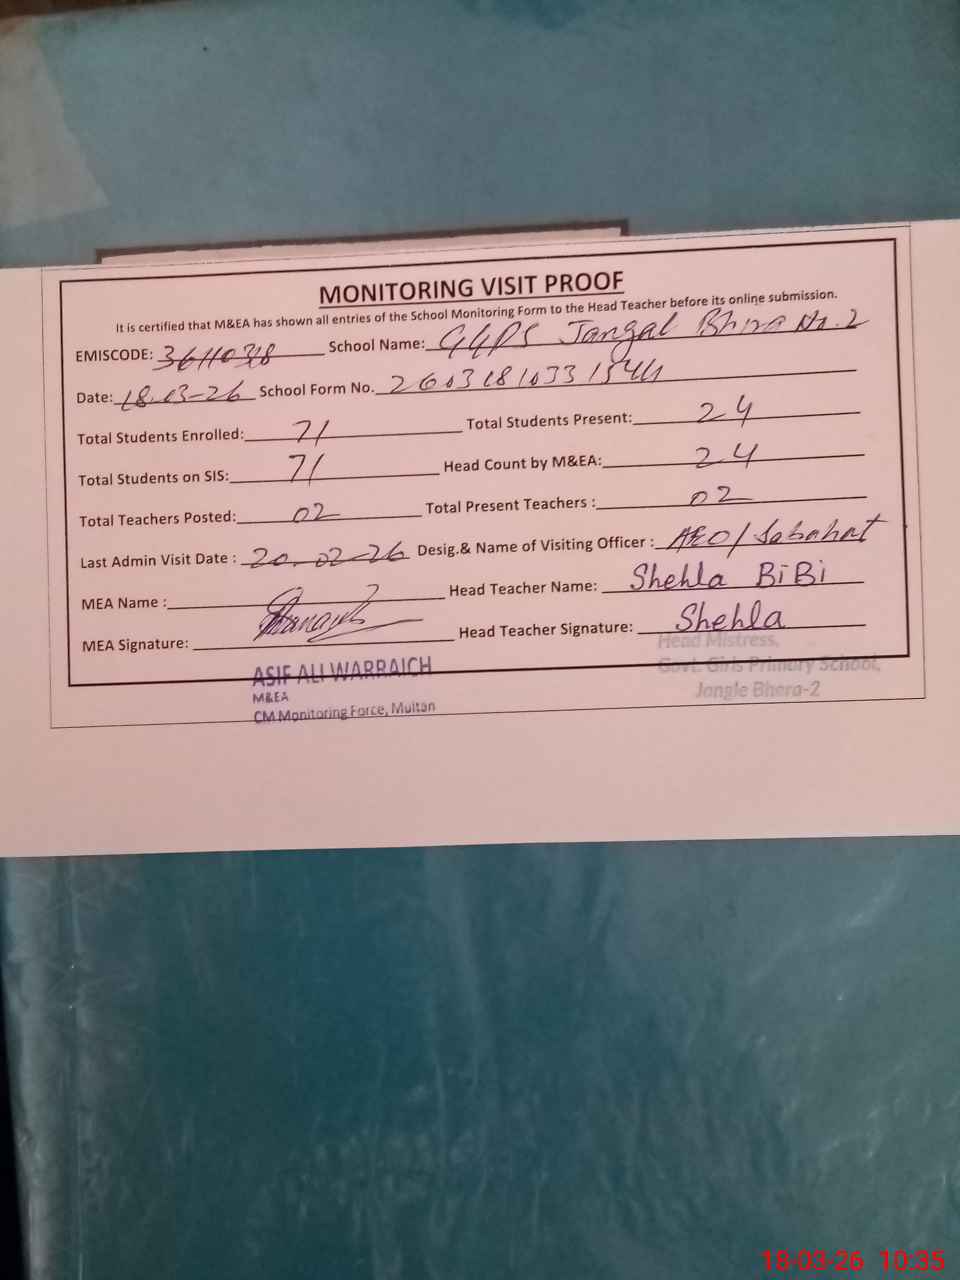 MONITORING VISIT PROOF
It is certified that M&EA has shown all entries of the School Monitoring Form to the Head Teacher before its online submission.
EMISCODE: 36110318 School Name: GGPS Jangal Bhira No. 2
Date: 18-03-26 School Form No. 2603181033 1544
Total Students Enrolled: 71 Total Students Present: 24
Total Students on SIS: 71 Head Count by M&EA: 24
Total Teachers Posted: 02 Total Present Teachers : 02
Last Admin Visit Date : 20-02-26 Desig.& Name of Visiting Officer : AEO/Sabahat
MEA Name : Head Teacher Name: Shehla BiBi
MEA Signature: Head Teacher Signature: Shehla
ASIF ALI WARRAICH
M&EA
CM Monitoring Force, Multan
Head Mistress,
Govt. Girls Primary School,
Jangle Bhera-2
18-03-26 10:35